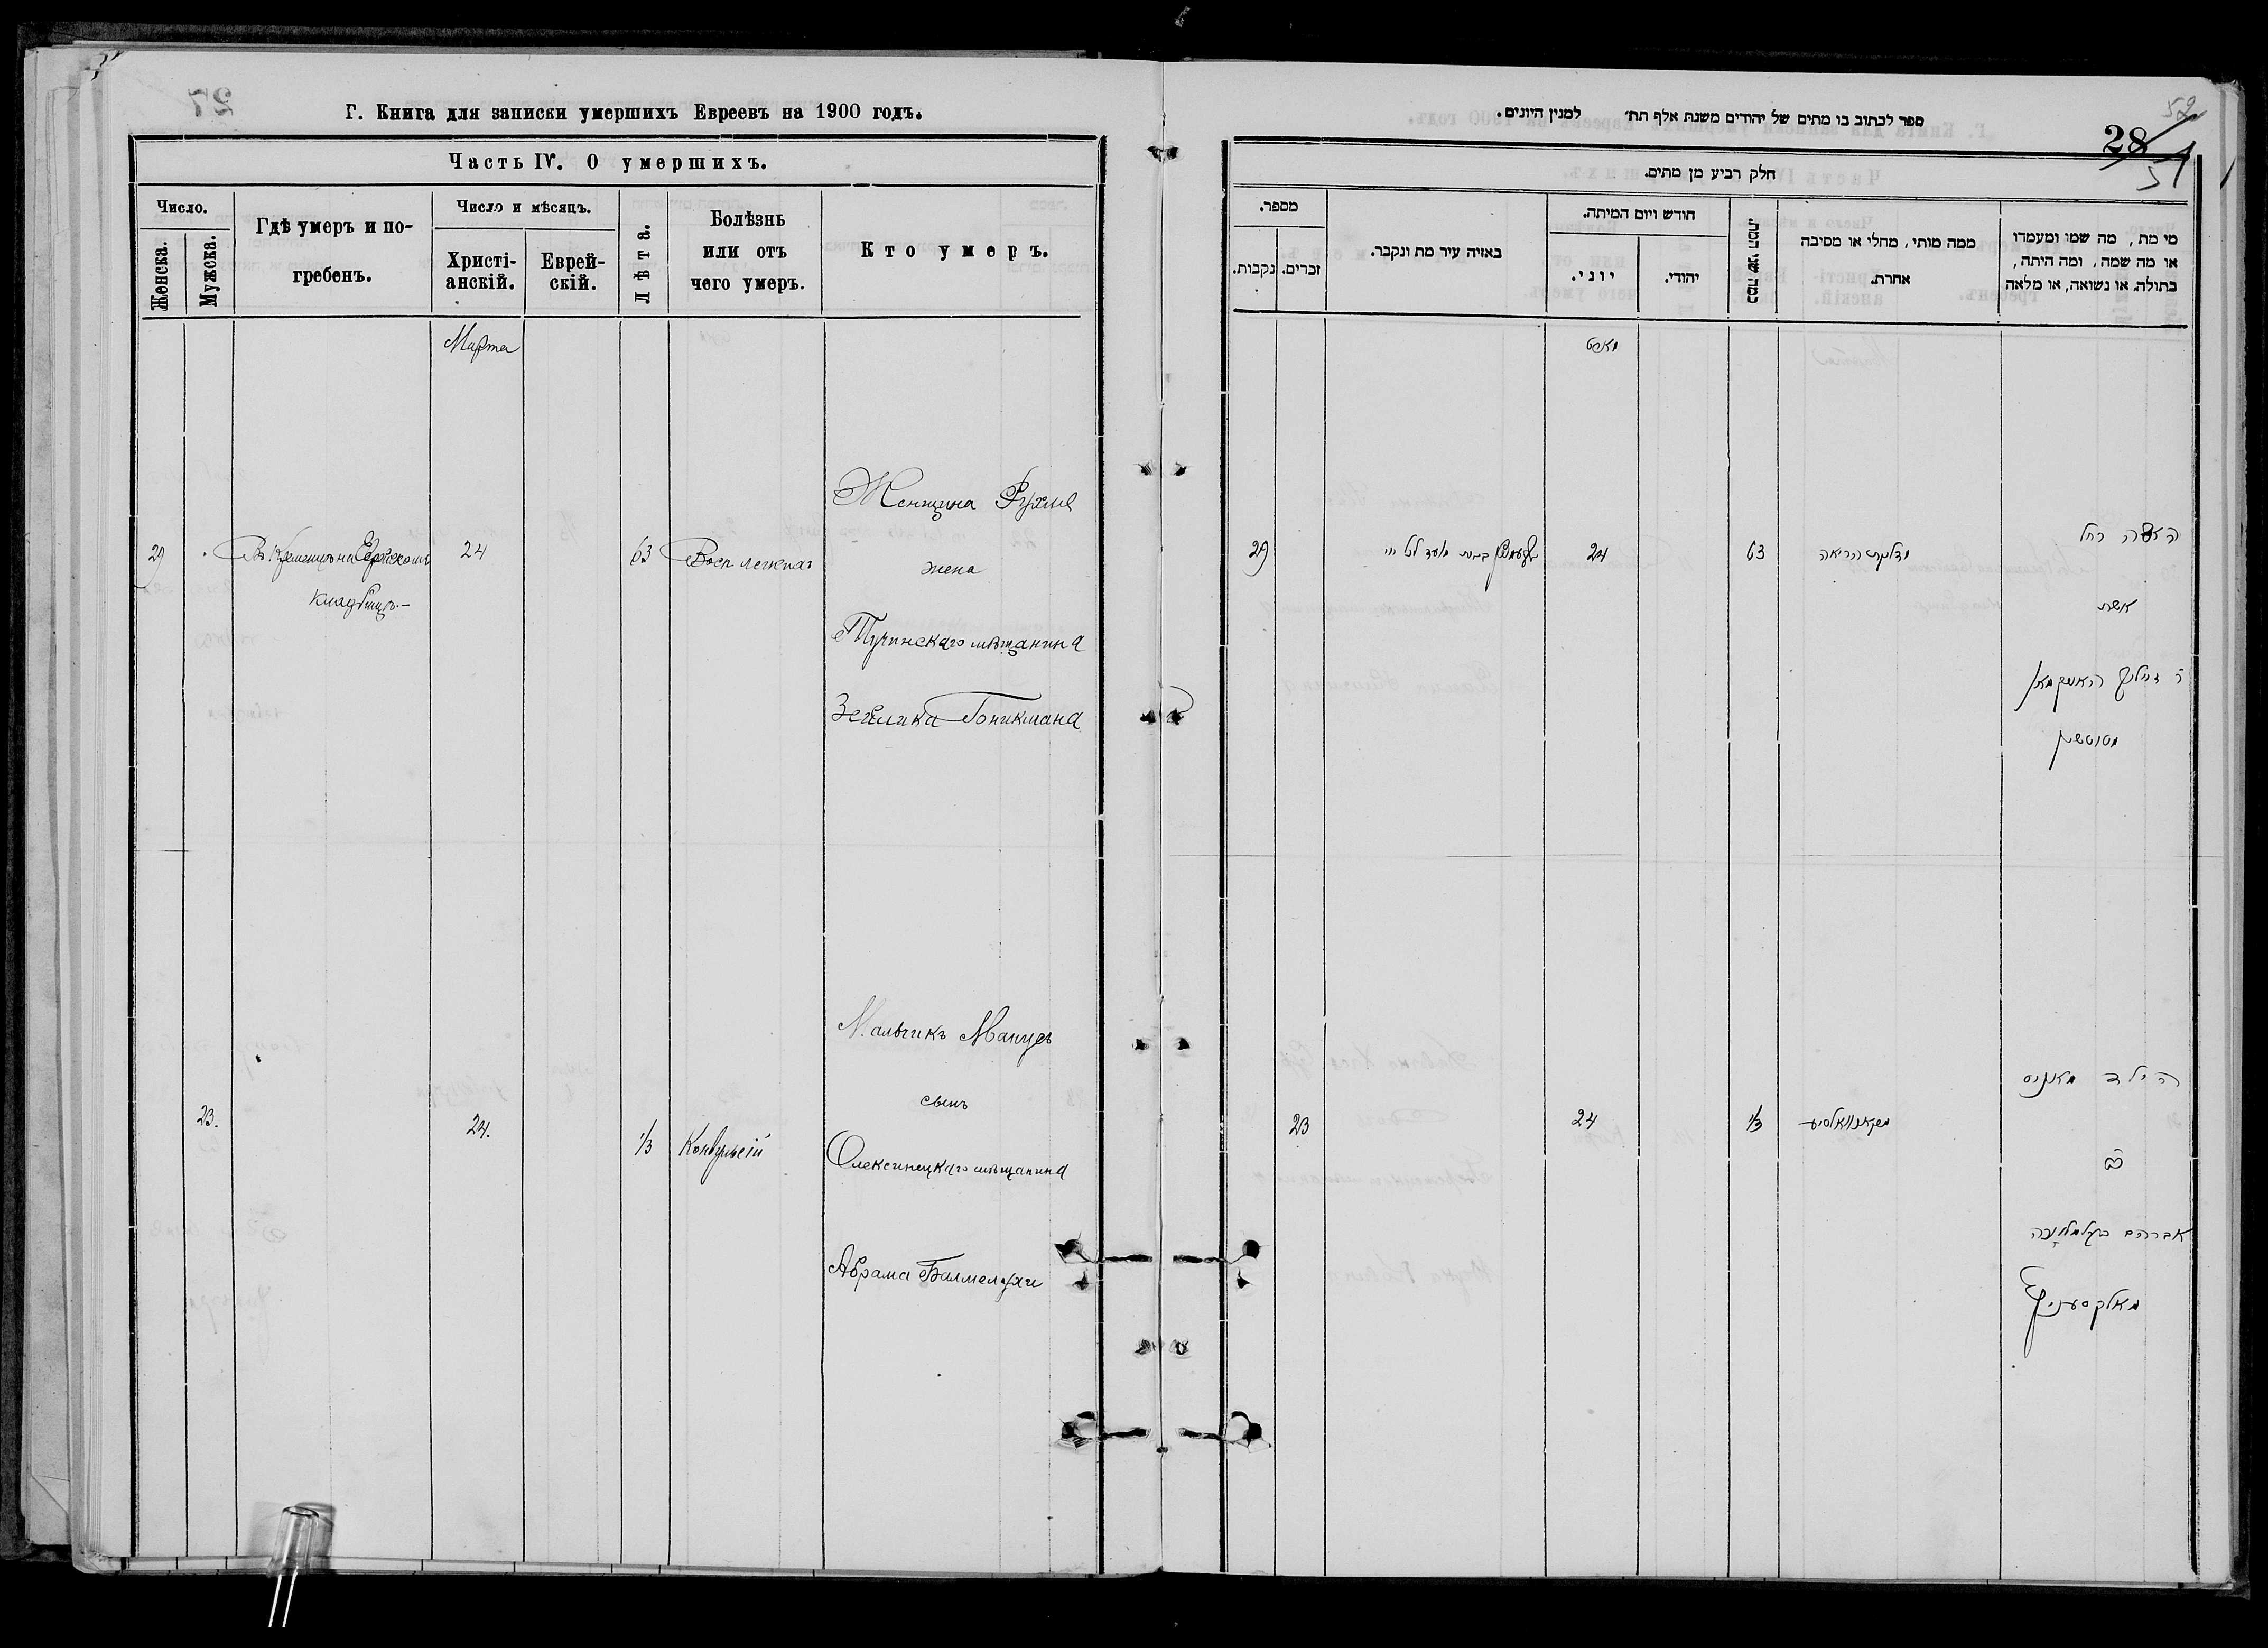 Г. Книга для записки умершихъ Евреевъ на 1900 годъ.
Часть IV. О умершихъ.
Число.
Женска.
Мужска.
Гдѣ умеръ и по-
гребенъ.
Число и мѣсяцъ.
Христі-
анскій.
Еврей-
скій.
Лѣта.
Болѣзнь
или отъ
чего умеръ.
Кто умеръ.
Марта
29
Въ Кременцѣ на Еврейскомъ
кладбищѣ.-
24
63
Восп легкихъ
Женщина Рухля
жена
Тучинскаго мѣщанина
Зейлика Гоникмана
23.
24.
1/3
Конвульсій
Мальчикъ Манусъ
сынъ
Олексинецкаго мѣщанина
Абрама
ספר לכתוב בו מתים של יהודים משנת אלף תת׳ למנין היונים.
52
28
51
חלק רביע מן מתים.
מספר.
נקבות.
זכרים.
באיזה עיר מת ונקבר.
חודש ויום המיתה.
יוני.
יהודי.
כמה שני המת.
ממה מותי, מחלי או מסיבה
אחרת.
מי מת, מה שמו ומעמדו
או מה שמה, ומה היתה,
בתולה, או נשואה, או מלאה
מארט
29
24
63
מדלקת הריאה
האשה רחל
אשת
ר׳ זייליק האניקמאן
מטוטשין
23
24
1/3
הילד מאניס
בן
אברהם
מאלקסעניץ